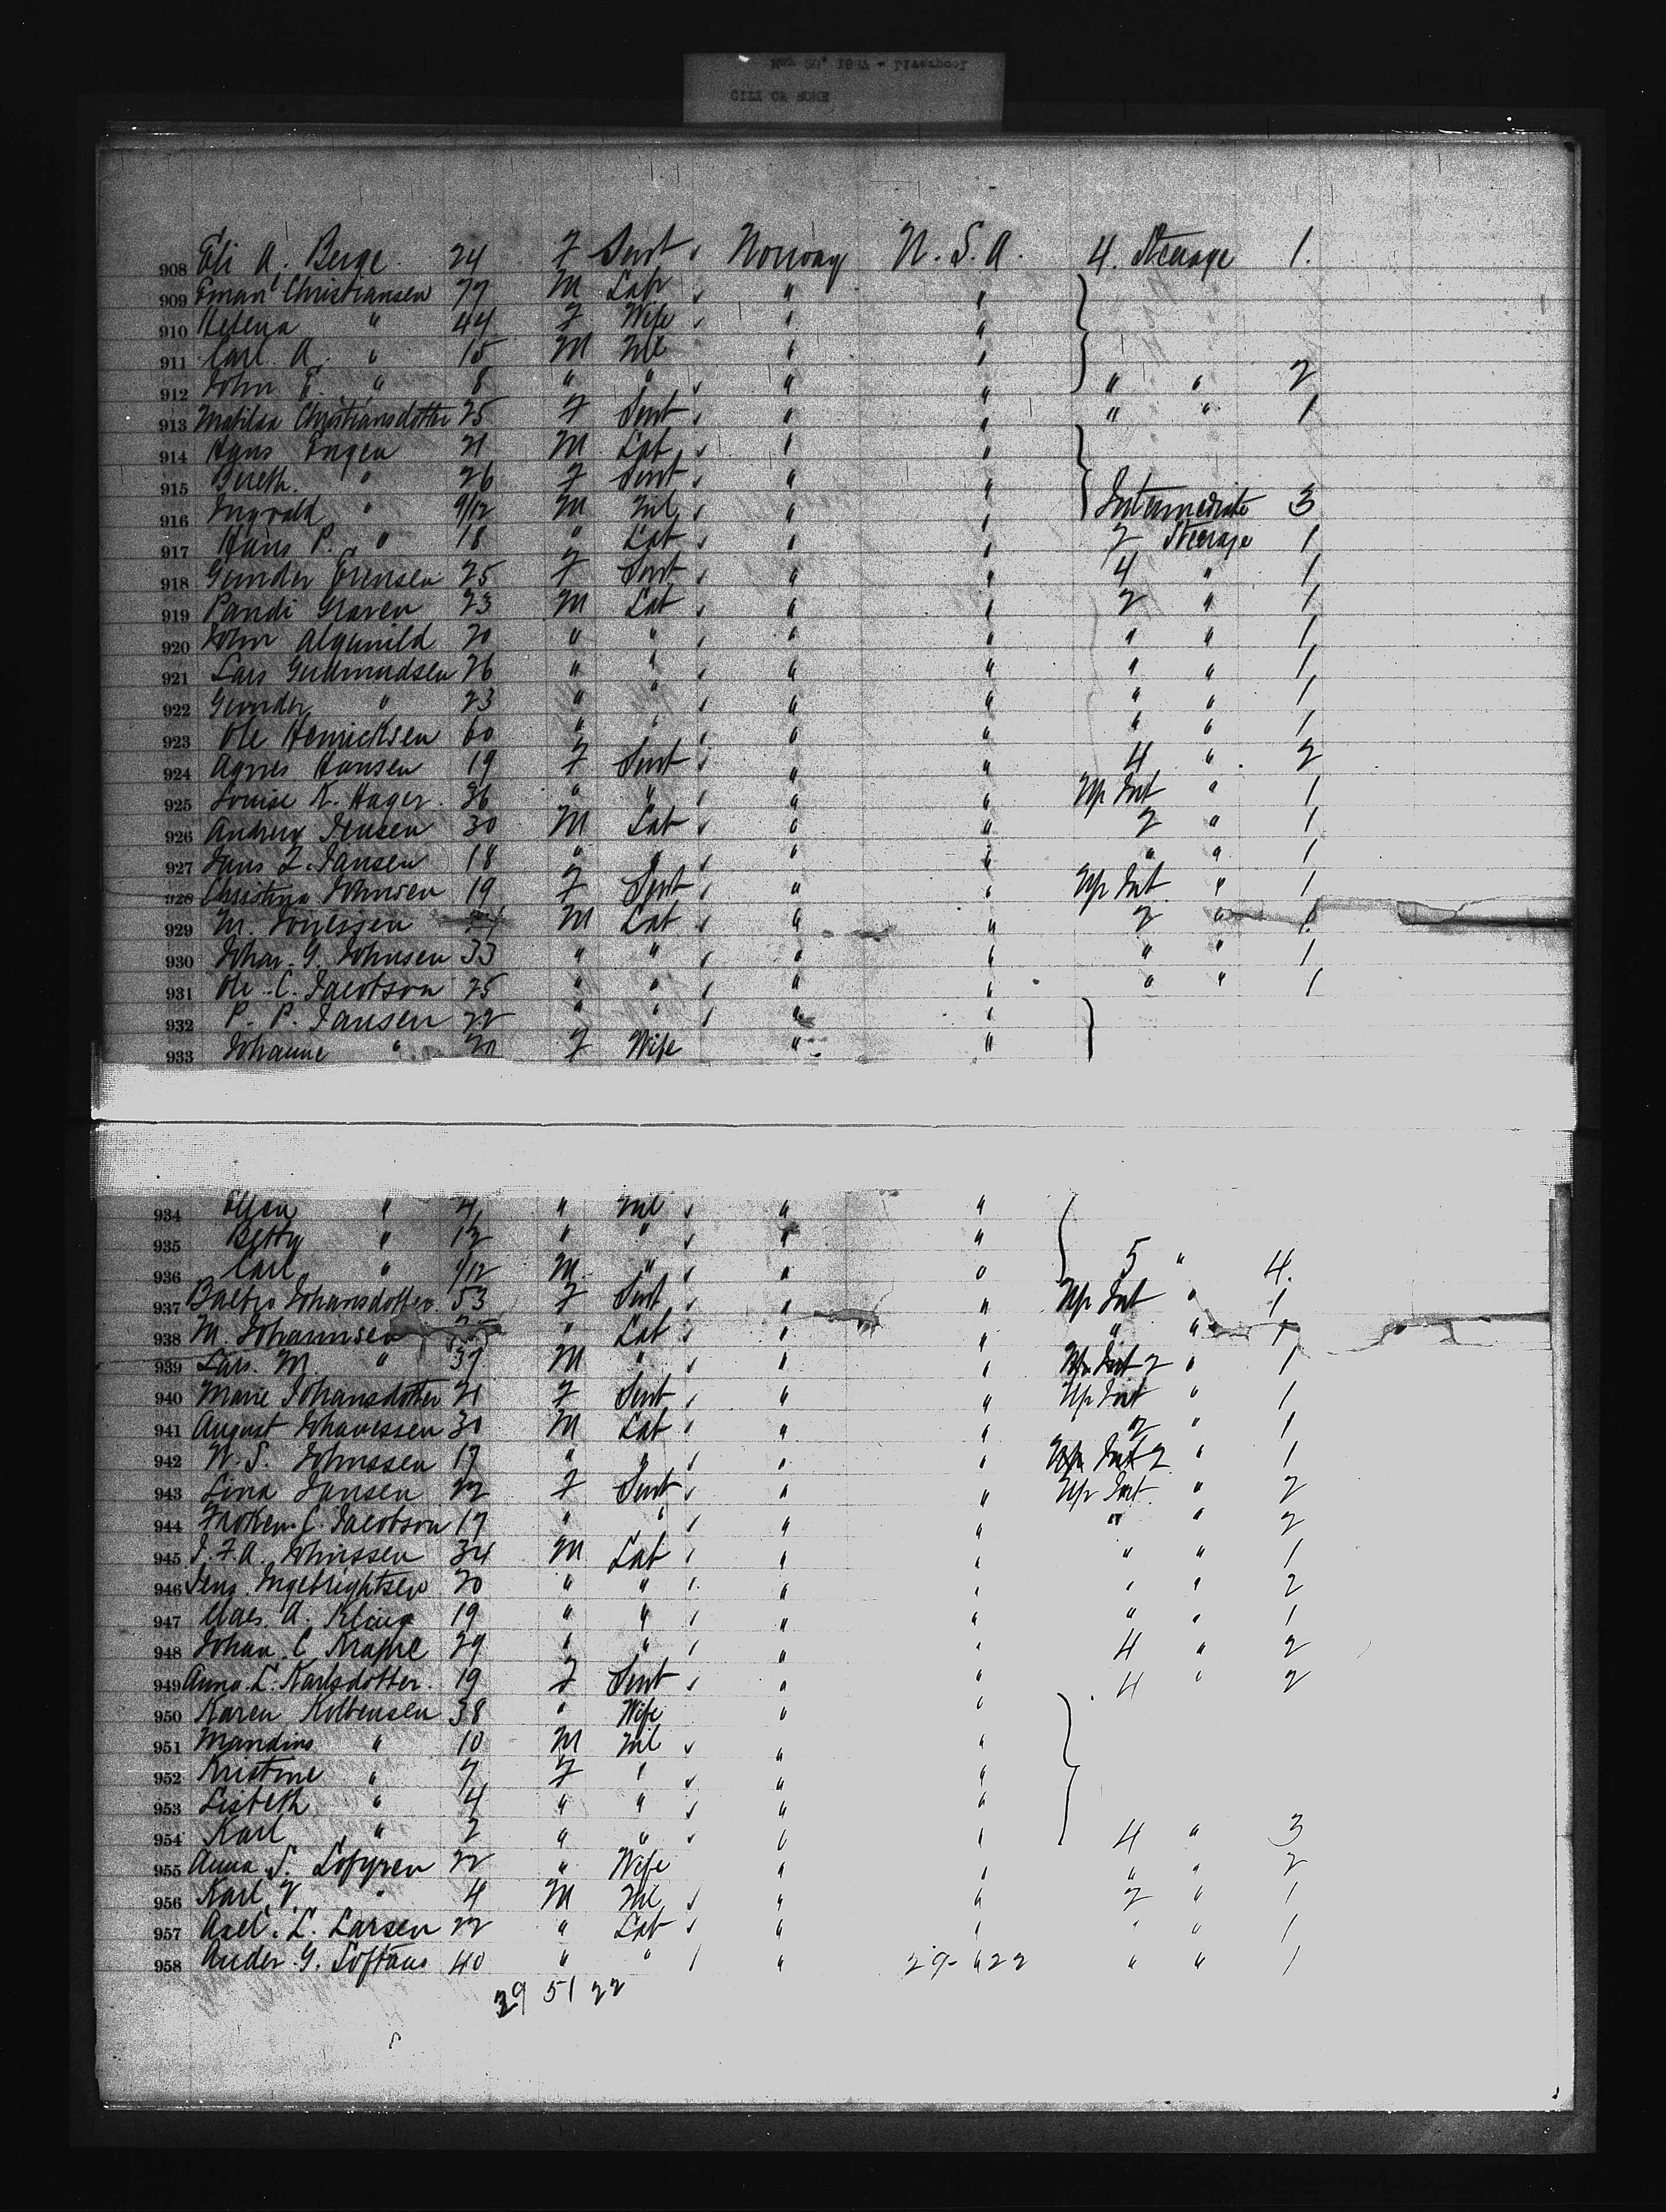 CITY OF ROME
908 Eli A. Berge 24 F Servt Norway U.S.A. 4. Steerage 1.
909 Christiansen 77 M Labr " "
910 Helena " 44 F Wife " "
911 Carl A. " 15 M Nil " "
912 John E. " 8 " " " " " " 2
913 Matilda Christiansdotter 25 F Servt " " " " 1
914 Hans Engen 21 M Lab " "
915 Bereth " 26 F Servt " "
916 Ingvald " 9/12 M Nil " " Intermediate 3
917 Hans P. " 18 " Lab " " 2 Steerage 1
918 Gunder Erensen 25 F Servt " " 4 " 1
919 Pandi Graven 23 M Lab " " 2 " 1
920 John Algunild 20 " " " " " " 1
921 Lars Gudmundsen 26 " " " " " " 1
922 Gunder " 23 " " " " " " 1
923 Ole Henricksen 60 " " " " " " 1
924 Agnes Hansen 19 F Servt " " 4 " 2
925 Louise K. Hager 36 " " " " Up Int " 1
926 Andrew Jensen 30 M Lab " " 2 " 1
927 Jans F. Jansen 18 " " " " " " 1
928 Christina Johnsen 19 F Servt " " Up Int " 1
929 M. M Lab " " 2 " 1
930 Johan G. Johnsen 33 " " " " " " 1
931 Ole C. Jacobson 25 " " " " " " 1
932 P. P. Jansen 22 " " " "
933 Johanne " 20 F Wife " "
934 Ellen " 4 " Nil " "
935 Betty " " " " "
936 Carl " /12 M " " " 5 " 4.
937 Johansdotter 53 F Servt " " Up Int " 1
938 M. Johannsen " Lab " " " " 1
939 Lars M. " 37 M " " " 2 " 1
940 Marie Johansdotter 21 F Servt " " Up Int " 1
941 August Johanessen 30 M Lab " " 2 " 1
942 N. S. Johnssen 17 " " " " 2 " 1
943 Lina Jansen 22 F Servt " " Up Int " 2
944 Froken C. Jacobson 17 " " " " " " 2
945 J. F. A. Johnssen 34 M Lab " " " " 1
946 Jens Ingebrightsen 20 " " " " " " 2
947 Claes A. Kling 19 " " " " " " 1
948 Johan C. 29 " " " " 4 " 2
949 Anna L. Karlsdotter 19 F Servt " " 4 " 2
950 Karen Kolbensen 38 " Wife " "
951 Mandius " 10 M Nil " "
952 Kristine " 7 F " " "
953 Lisbeth " 4 " " " "
954 Karl " 2 " " " " 4 " 3
955 Anna S. Lofgren 22 " Wife " " " " 2
956 Karl V. " 4 M Nil " " 2 " 1
957 Axel L. Larsen 22 " Lab " " " " 1
958 Ander G. Loftaas 40 " " " 29- " 22 " " 1
29 51 22